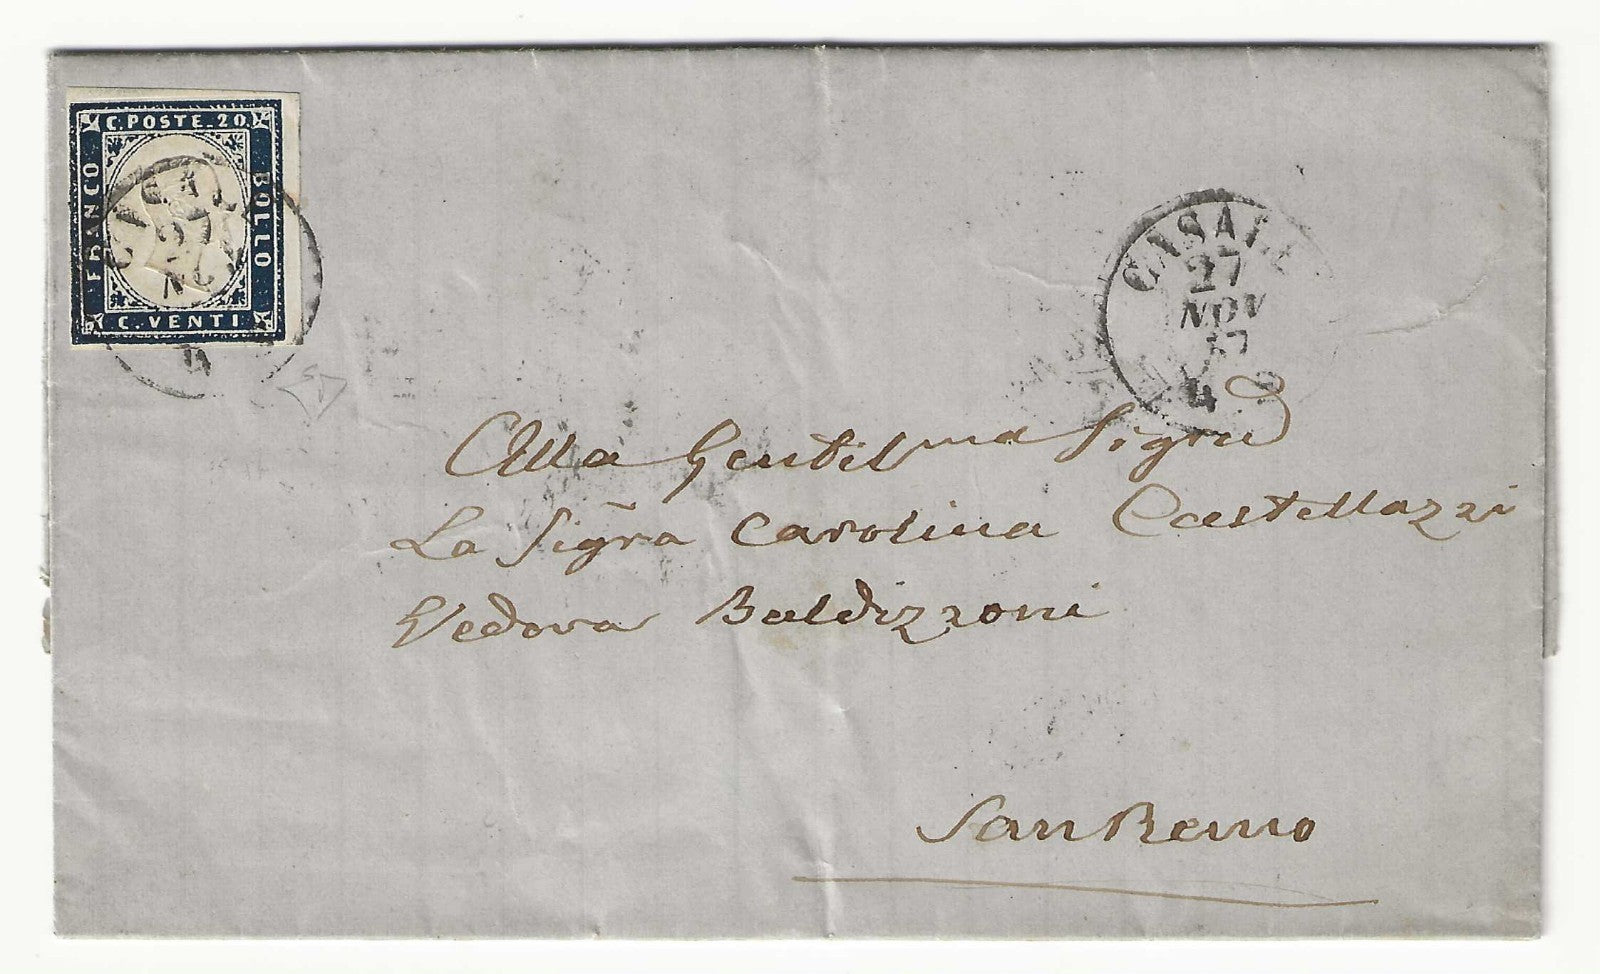 C. POSTE. 20.
FRANCO
BOLLO
C. VENTI
CASALE
27
NOV
4
CASALE
27
NOV
57
4
Alla Gentilma Sigra
La Sigra Carolina Castellazzi
Vedova Baldizzoni
San Remo